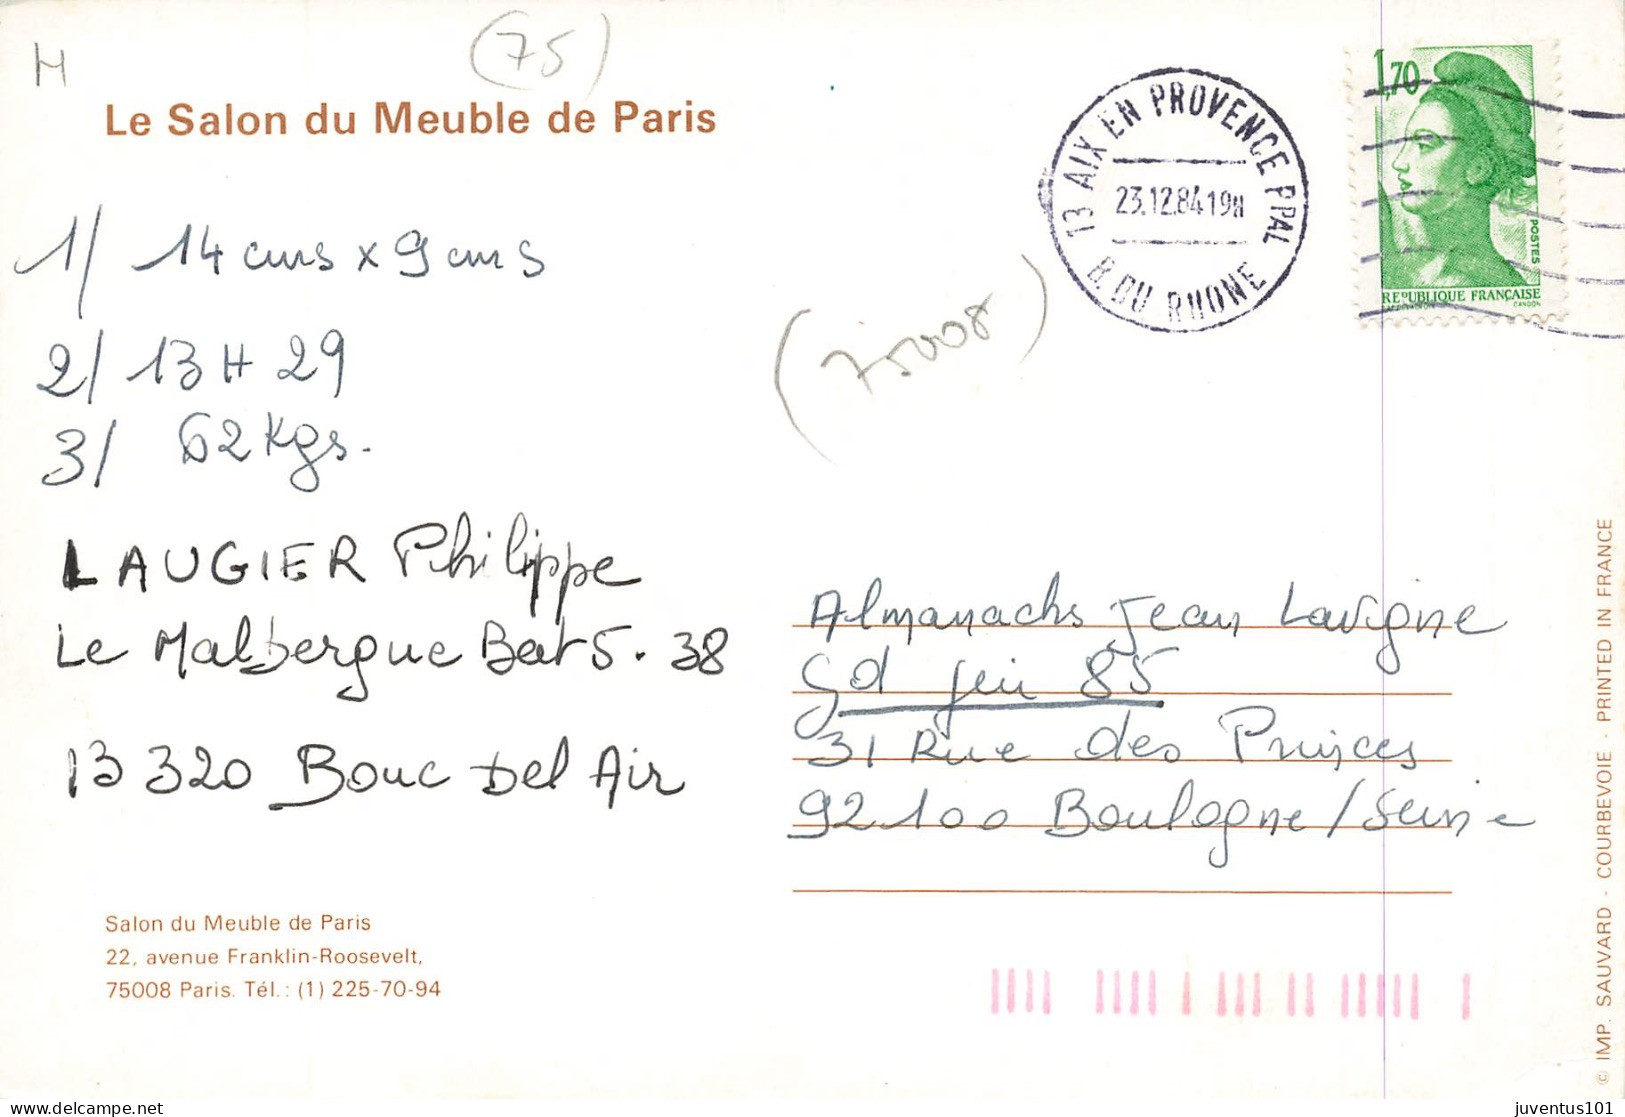 H
(75)
Le Salon du Meuble de Paris
13 AIX EN PROVENCE PPAL
23.12.84 19H
B. DU RHONE
1,70
POSTES
REPUBLIQUE FRANÇAISE
GANDON
1/ 14 cms x 9 cms
(75008)
2/ 13 H 29
3/ 62 Kgs.
LAUGIER Philippe
Le Malbergue Bat 5. 38
13 320 Bouc Del Air
Almanachs Jean Lavigne
Gd jeu 85
31 Rue des Princes
92100 Boulogne/Seine
Salon du Meuble de Paris
22, avenue Franklin-Roosevelt,
75008 Paris. Tél. : (1) 225-70-94
© IMP. SAUVARD - COURBEVOIE - PRINTED IN FRANCE
juventus101